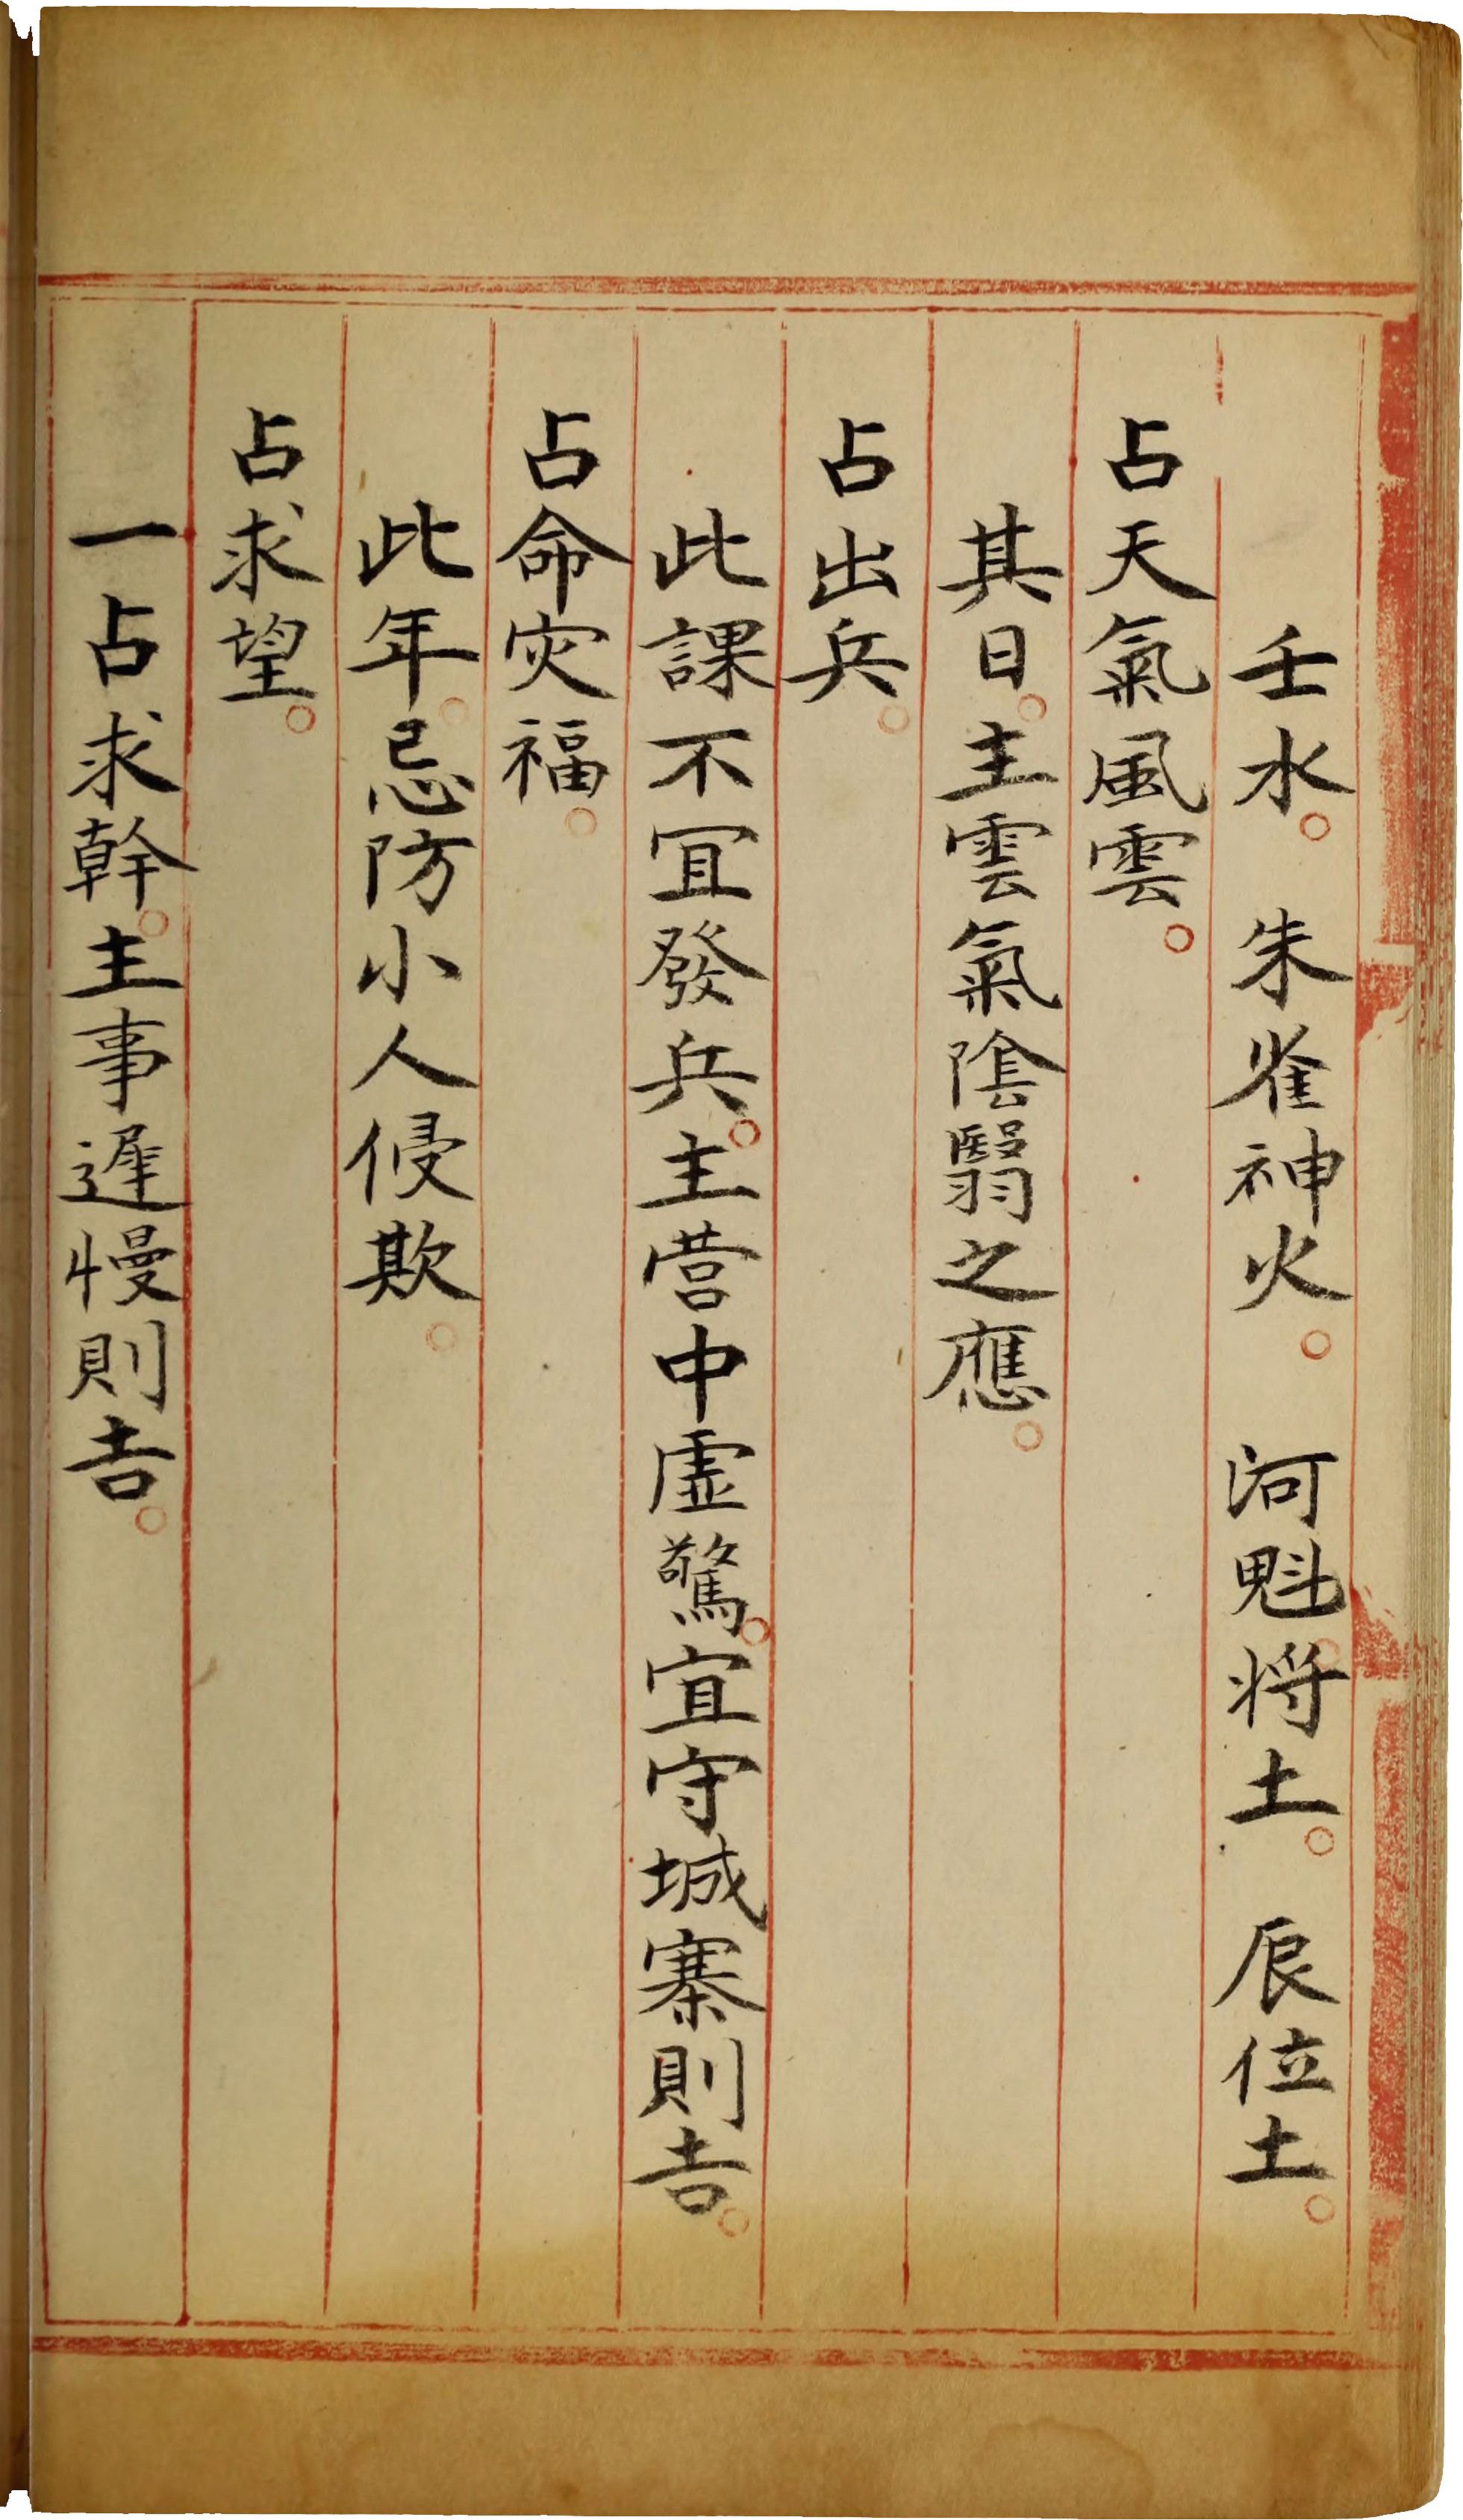 壬水。朱雀神火。河魁將土。辰位土。
占天氣風雲。
其日。主雲氣陰翳之應。
占出兵。
此課不冝發兵。主营中虛驚。宜守城寨則吉。
占命灾福。
此年。忌防小人侵欺。
占求望。
一占求幹。主事遲慢則吉。